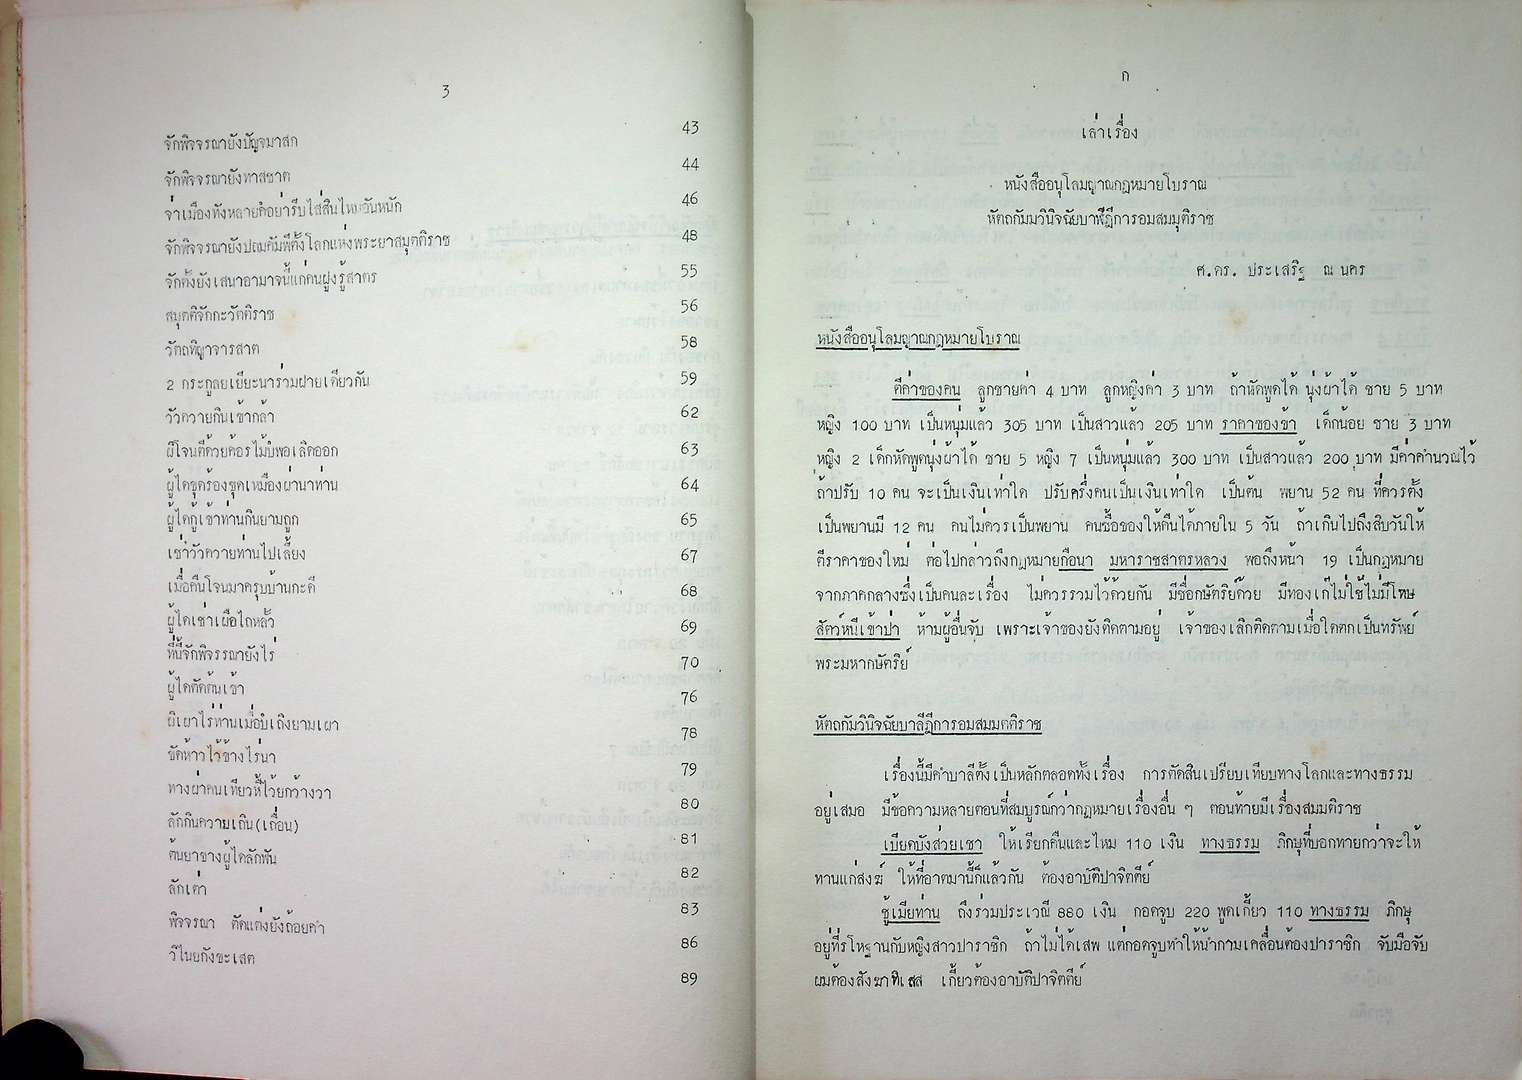 3
จักพิจจรณายังปัญจมาสก 43
จักพิจจรณายังทาสชาต 44
จ่าเมืองทังหลายก็อย่ารีบใส่สินไหมวันหนัก 46
จักพิจจรณายังปถมคัมพีตั้งโลกแห่งพระยาสมุตติราช 48
จักตั้งยังเสนาอามาจนี้แก่คนฝูงรู้สาตร 55
สมุตติจักกะวัตติราช 56
วัตถทิญาจารสาต 58
2 กระกูลยเยียะนาร่วมฝายเดียวกัน 59
วัวควายกินเข้ากล้า 62
ผิโจนตีด้วยค้อรไม้บ่พอเลิดออก 63
ผู้ใดขุดร้องขุดเหมืองผ่านาท่าน 64
ผู้ใดกู้เข้าท่านกินยามถูก 65
เช่าวัวควายท่านไปเลี้ยง 67
เมื่อคืนโจนมาครุบบ้านกะดี 68
ผู้ใดเช่าเผือไถหลั้ว 69
ที่นี้จักพิจรรณายังไร่ 70
ผู้ใดตัดต้นเข้า 76
ผิเผาไร่ท่านเมื่อบ่เถิงยามเผา 78
ขัดห้าวไว้ข้างไร่นา 79
ทางผ่าคนเทียวหื้ไว้ยกว้างวา 80
ลักกินความเถิน(เถื่อน) 81
ต้นยาจางผู้ใดลักพัน 82
ลักเต่า 83
พิจจรณา ตัดแต่งยังถ้อยคำ 86
วิไนยกังขะเสต 89
ก
เล่าเรื่อง
หนังสืออนุโลมญาณกฎหมายโบราณ
หัตถกัมมวินิจฉัยบาฬีฎีการอมสมมุติราช
ศ.ดร. ประเสริฐ ณ นคร
หนังสืออนุโลมญาณกฎหมายโบราณ
ตีค่าของคน ลูกชายค่า 4 บาท ลูกหญิงค่า 3 บาท ถ้าหัดพูดได้ นุ่งผ้าได้ ชาย 5 บาท
หญิง 100 บาท เป็นหนุ่มแล้ว 305 บาท เป็นสาวแล้ว 205 บาท ราคาของข้า เด็กน้อย ชาย 3 บาท
หญิง 2 เด็กหัดพูดนุ่งผ้าได้ ชาย 5 หญิง 7 เป็นหนุ่มแล้ว 300 บาท เป็นสาวแล้ว 200 บาท มีค่าคำนวณไว้
ถ้าปรับ 10 คน จะเป็นเงินเท่าใด ปรับครึ่งคนเป็นเงินเท่าใด เป็นต้น พยาน 52 คน ที่ควรตั้ง
เป็นพยานมี 12 คน คนไม่ควรเป็นพยาน คนซื้อของให้คืนได้ภายใน 5 วัน ถ้าเกินไปถึงสิบวันให้
ตีราคาของใหม่ ต่อไปกล่าวถึงกฎหมายกือนา มหาราชสาตรหลวง พอถึงหน้า 19 เป็นกฎหมาย
จากภาคกลางซึ่งเป็นคนละเรื่อง ไม่ควรรวมไว้ด้วยกัน มีชื่อกษัตริย์ด้วย มีทองเก๊ไม่ใช้ไม่มีโทษ
สัตว์หนีเข้าป่า ห้ามผู้อื่นจับ เพราะเจ้าของยังติดตามอยู่ เจ้าของเลิกติดตามเมื่อใดตกเป็นทรัพย์
พระมหากษัตริย์
หัตถกัมวินิจฉัยบาลีฎีการอมสมมตติราช
เรื่องนี้มีคำบาลีตั้งเป็นหลักตลอดทั้งเรื่อง การตัดสินเปรียบเทียบทางโลกและทางธรรม
อยู่เสมอ มีข้อความหลายตอนที่สมบูรณ์กว่ากฎหมายเรื่องอื่น ๆ ตอนท้ายมีเรื่องสมมติราช
เบียดบังส่วยเขา ให้เรียกคืนและไหม 110 เงิน ทางธรรม ภิกษุที่บอกทายกว่าจะให้
ทานแก่สงฆ์ ให้ที่อาตมานี้ก็แล้วกัน ต้องอาบัติปาจิตตีย์
ชู้เมียท่าน ถึงร่วมประเวณี 880 เงิน กอดจูบ 220 พูดเกี้ยว 110 ทางธรรม ภิกษุ
อยู่ที่รโหฐานกับหญิงสาวปาราชิก ถ้าไม่ได้เสพ แต่กอดจูบทำให้น้ำกามเคลื่อนต้องปาราชิก จับมือจับ
ผมต้องสังฆาทิเสส เกี้ยวต้องอาบัติปาจิตตีย์